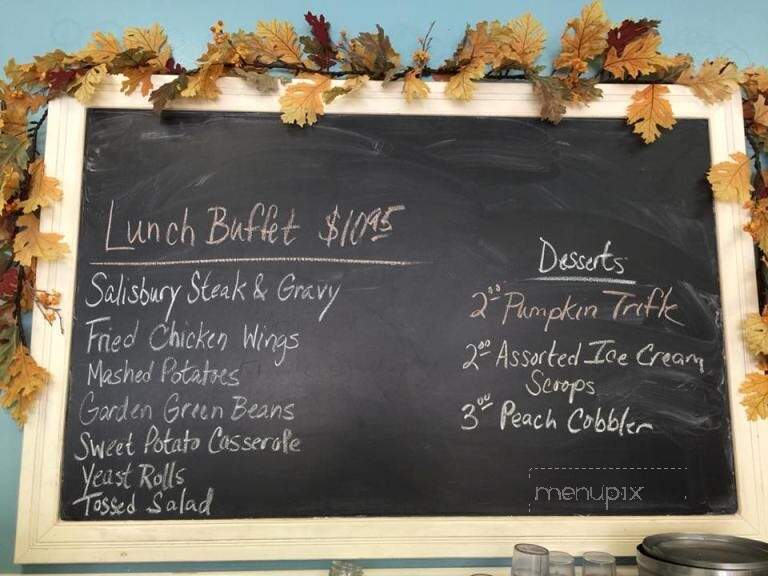 Lunch Buffet $10.95
Salisbury Steak & Gravy
Fried Chicken Wings
Mashed Potatoes
Garden Green Beans
Sweet Potato Casserole
Yeast Rolls
Tossed Salad
Desserts
2.00 Pumpkin Trifle
2.00 Assorted Ice Cream
Scoops
3.00 Peach Cobbler
menupix